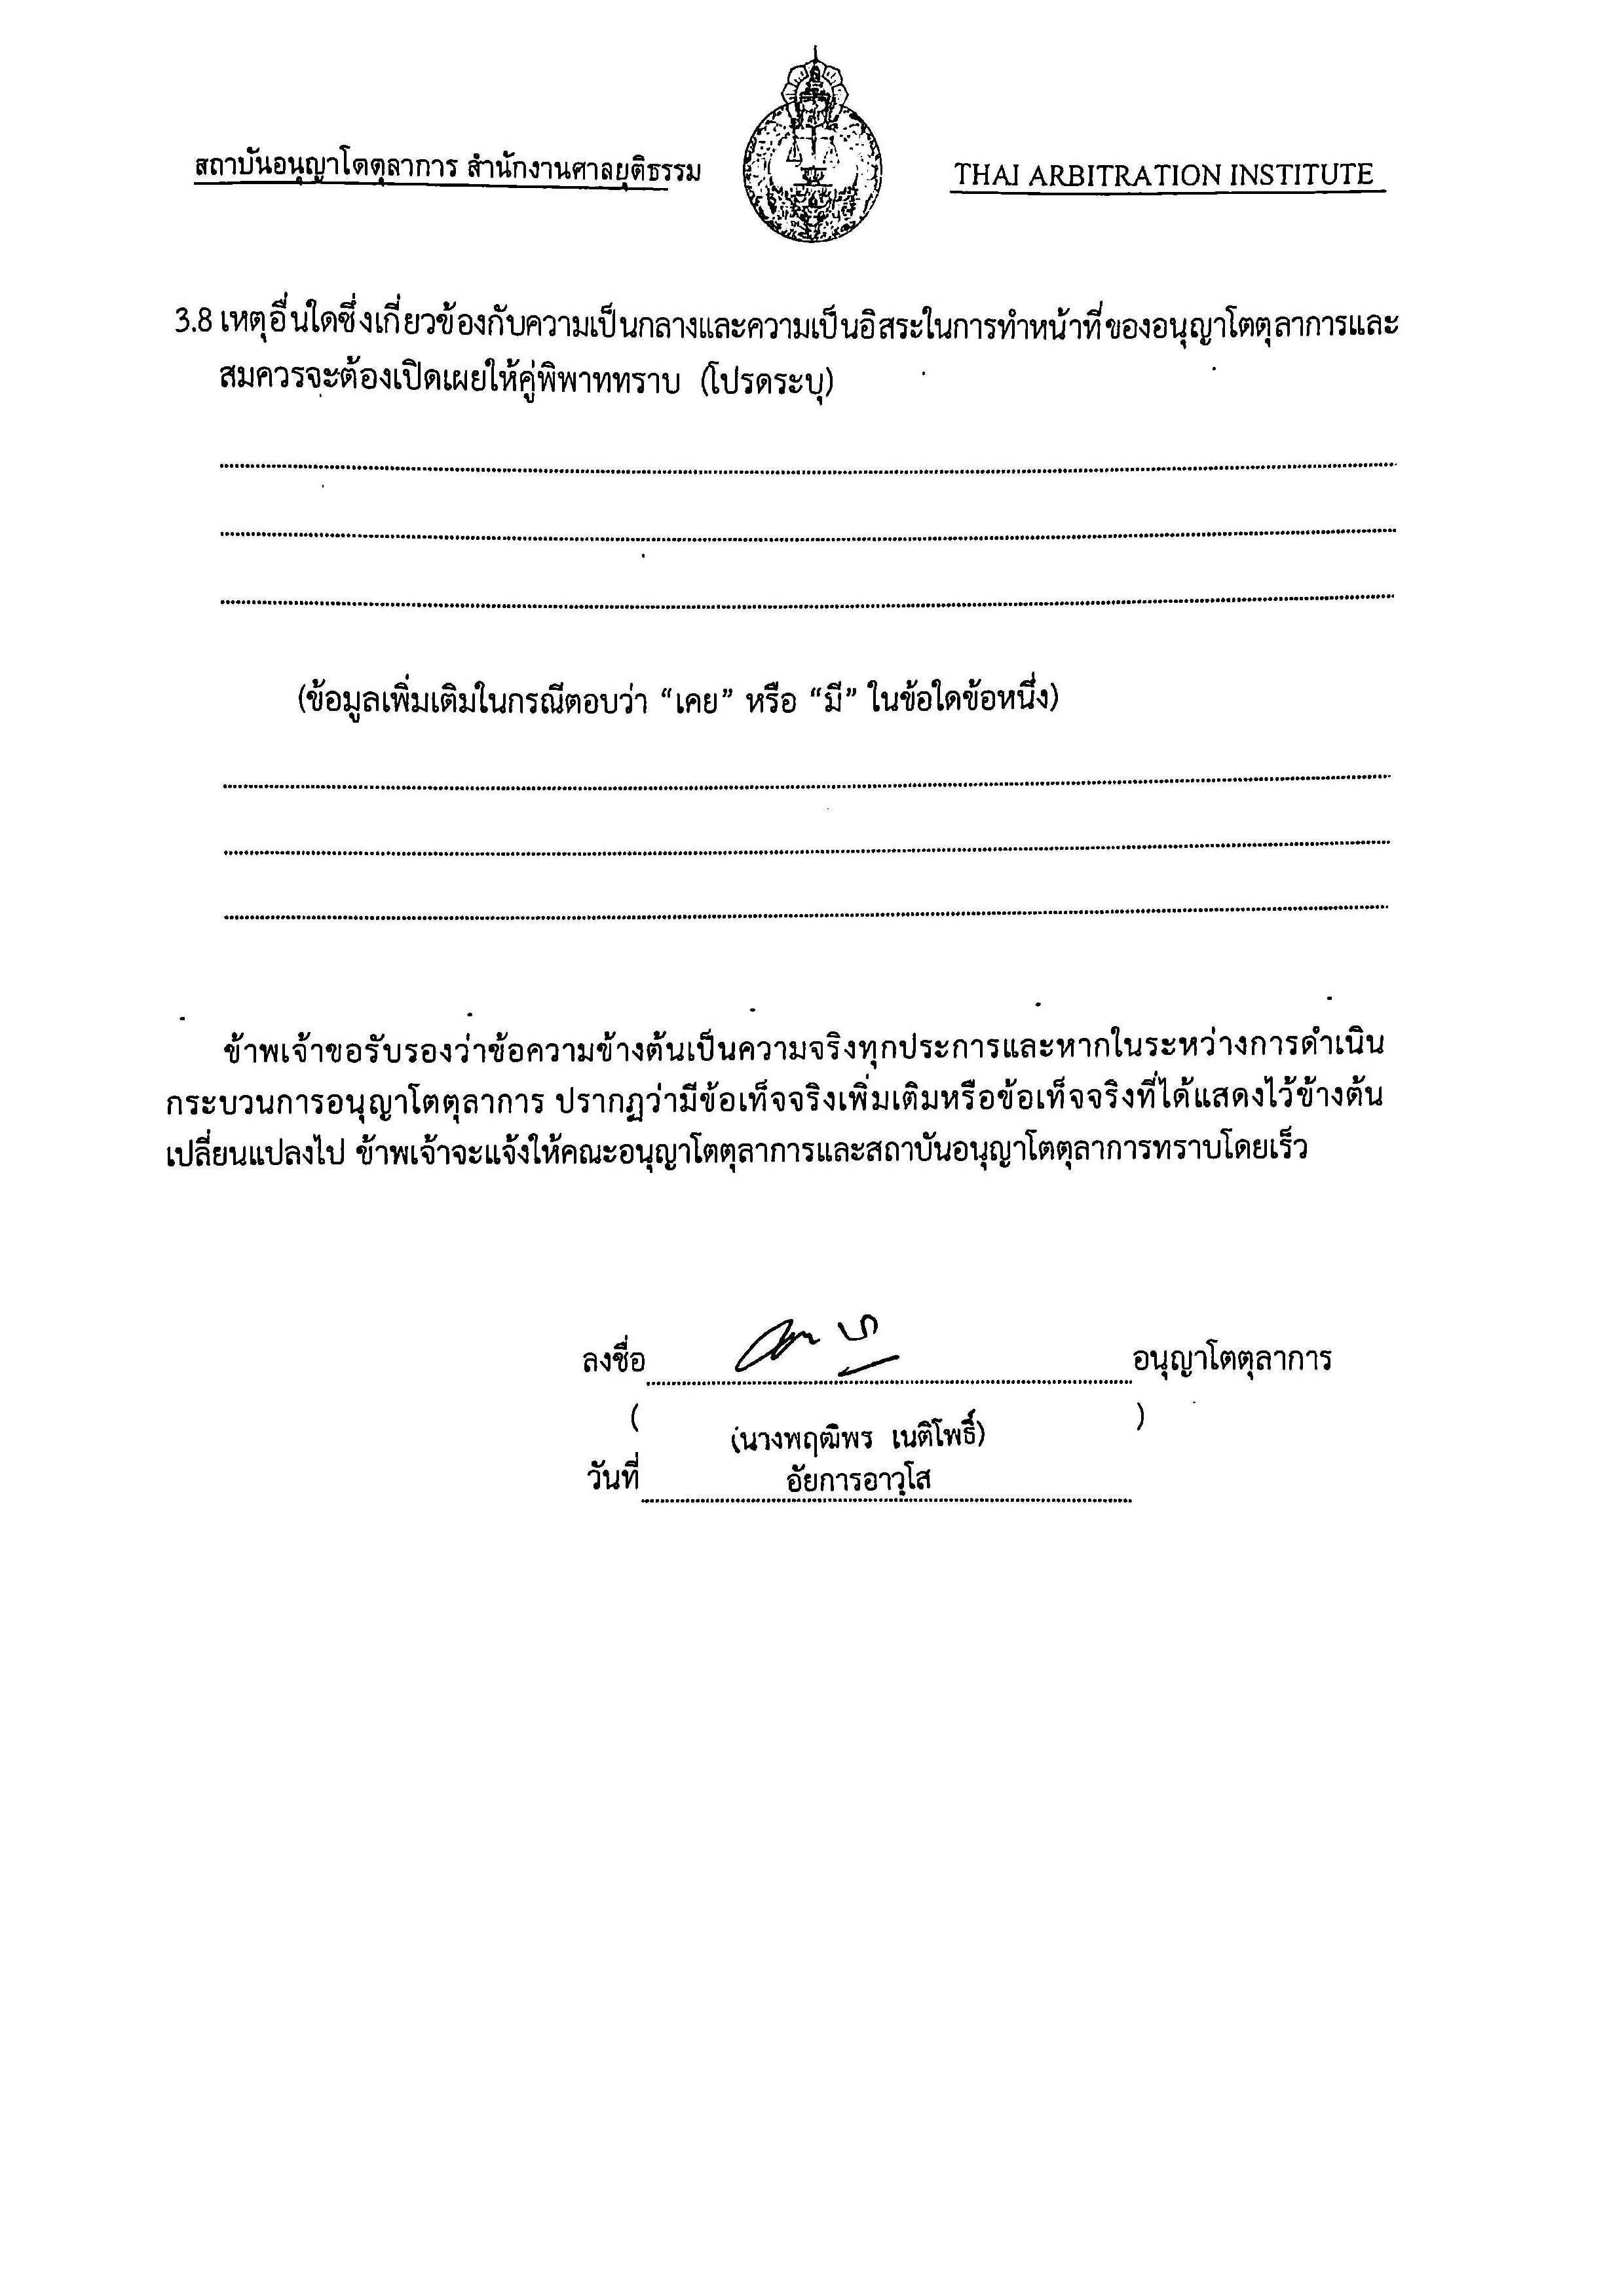 สถาบันอนุญาโตตุลาการ สำนักงานศาลยุติธรรม
THAI ARBITRATION INSTITUTE
3.8 เหตุอื่นใดซึ่งเกี่ยวข้องกับความเป็นกลางและความเป็นอิสระในการทำหน้าที่ของอนุญาโตตุลาการและ
สมควรจะต้องเปิดเผยให้คู่พิพาททราบ (โปรดระบุ)
(ข้อมูลเพิ่มเติมในกรณีตอบว่า “เคย” หรือ “มี” ในข้อใดข้อหนึ่ง)
ข้าพเจ้าขอรับรองว่าข้อความข้างต้นเป็นความจริงทุกประการและหากในระหว่างการดำเนิน
กระบวนการอนุญาโตตุลาการ ปรากฏว่ามีข้อเท็จจริงเพิ่มเติมหรือข้อเท็จจริงที่ได้แสดงไว้ข้างต้น
เปลี่ยนแปลงไป ข้าพเจ้าจะแจ้งให้คณะอนุญาโตตุลาการและสถาบันอนุญาโตตุลาการทราบโดยเร็ว
ลงชื่อ อนุญาโตตุลาการ
( (นางพฤฒิพร เนติโพธิ์) )
วันที่ อัยการอาวุโส